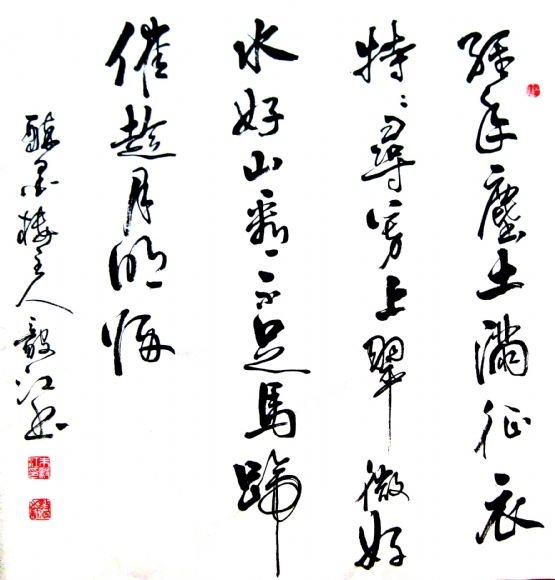 經年塵土滿征衣
特々尋芳上翠微好
水好山看不足馬蹄
催趁月明歸
醉墨樓主人毅江书